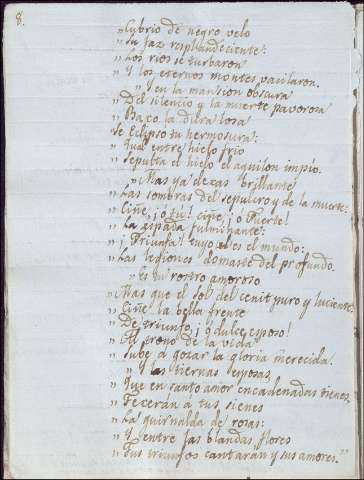 8.
„ Cubrió de negro velo
„ Su faz resplandeciente:
„ Los rios se turbaron
„ Y los eternos montes vacilaron.
„ Y en la mansion obscura
„ Del silencio y la muerte pavorosa
„ Baxo la dura losa
Se eclipsó su hermosura:
„ Qual entre hielo frio
„ Sepulta el hielo el aquilon impío.
„ Mas ya dexas brillante
„ Las sombras del sepulcro y de la muerte:
„ Ciñe, ¡ó tu! ciñe, ¡ó Fuerte!
„ La espada fulminante:
„ ¡Triunfa! tuyo es el mundo:
„ Las legiones domaste del profundo.
„ Es tu rostro amoroso
„ Mas que el Sol del cenit puro y luciente:
„ Ciñe la bella frente
„ De triunfo, ¡ó dulce esposo!
„ Al trono de la vida
„ Sube á gozar la gloria merecida.
„ Y las tiernas esposas
„ Que en santo amor encadenadas tienes,
„ Texerán á tus sienes
„ La guirnalda de rosas:
„ Y entre las blandas flores
„ Tus triunfos cantarán y sus amores.”